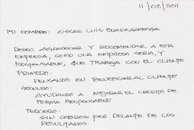 11/02/2011
MI NOMBRE: OSCAR LUIS
DESEO AGRADECER Y RECOMENDAR, A ESTA
EMPRESA, COMO UNA EMPRESA SERIA, Y
RESPONSABLE, QUE TRABAJA CON EL CLIENTE
PRIMERO:
PENSANDO EN BENEFICIAR AL CLIENTE
SEGUNDO:
AYUDANDO A MEJORAR EL CREDITO DE
FORMA RESPONSABLE
TERCERO:
SIN COBROS POR DELANTE DE LOS
RESULTADOS.